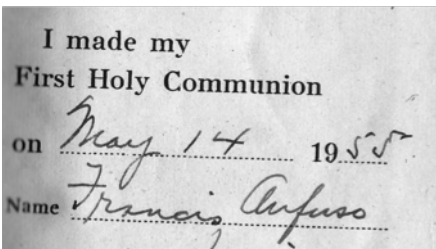 I made my
First Holy Communion
on May 14 1955
Name Francis Anfuso